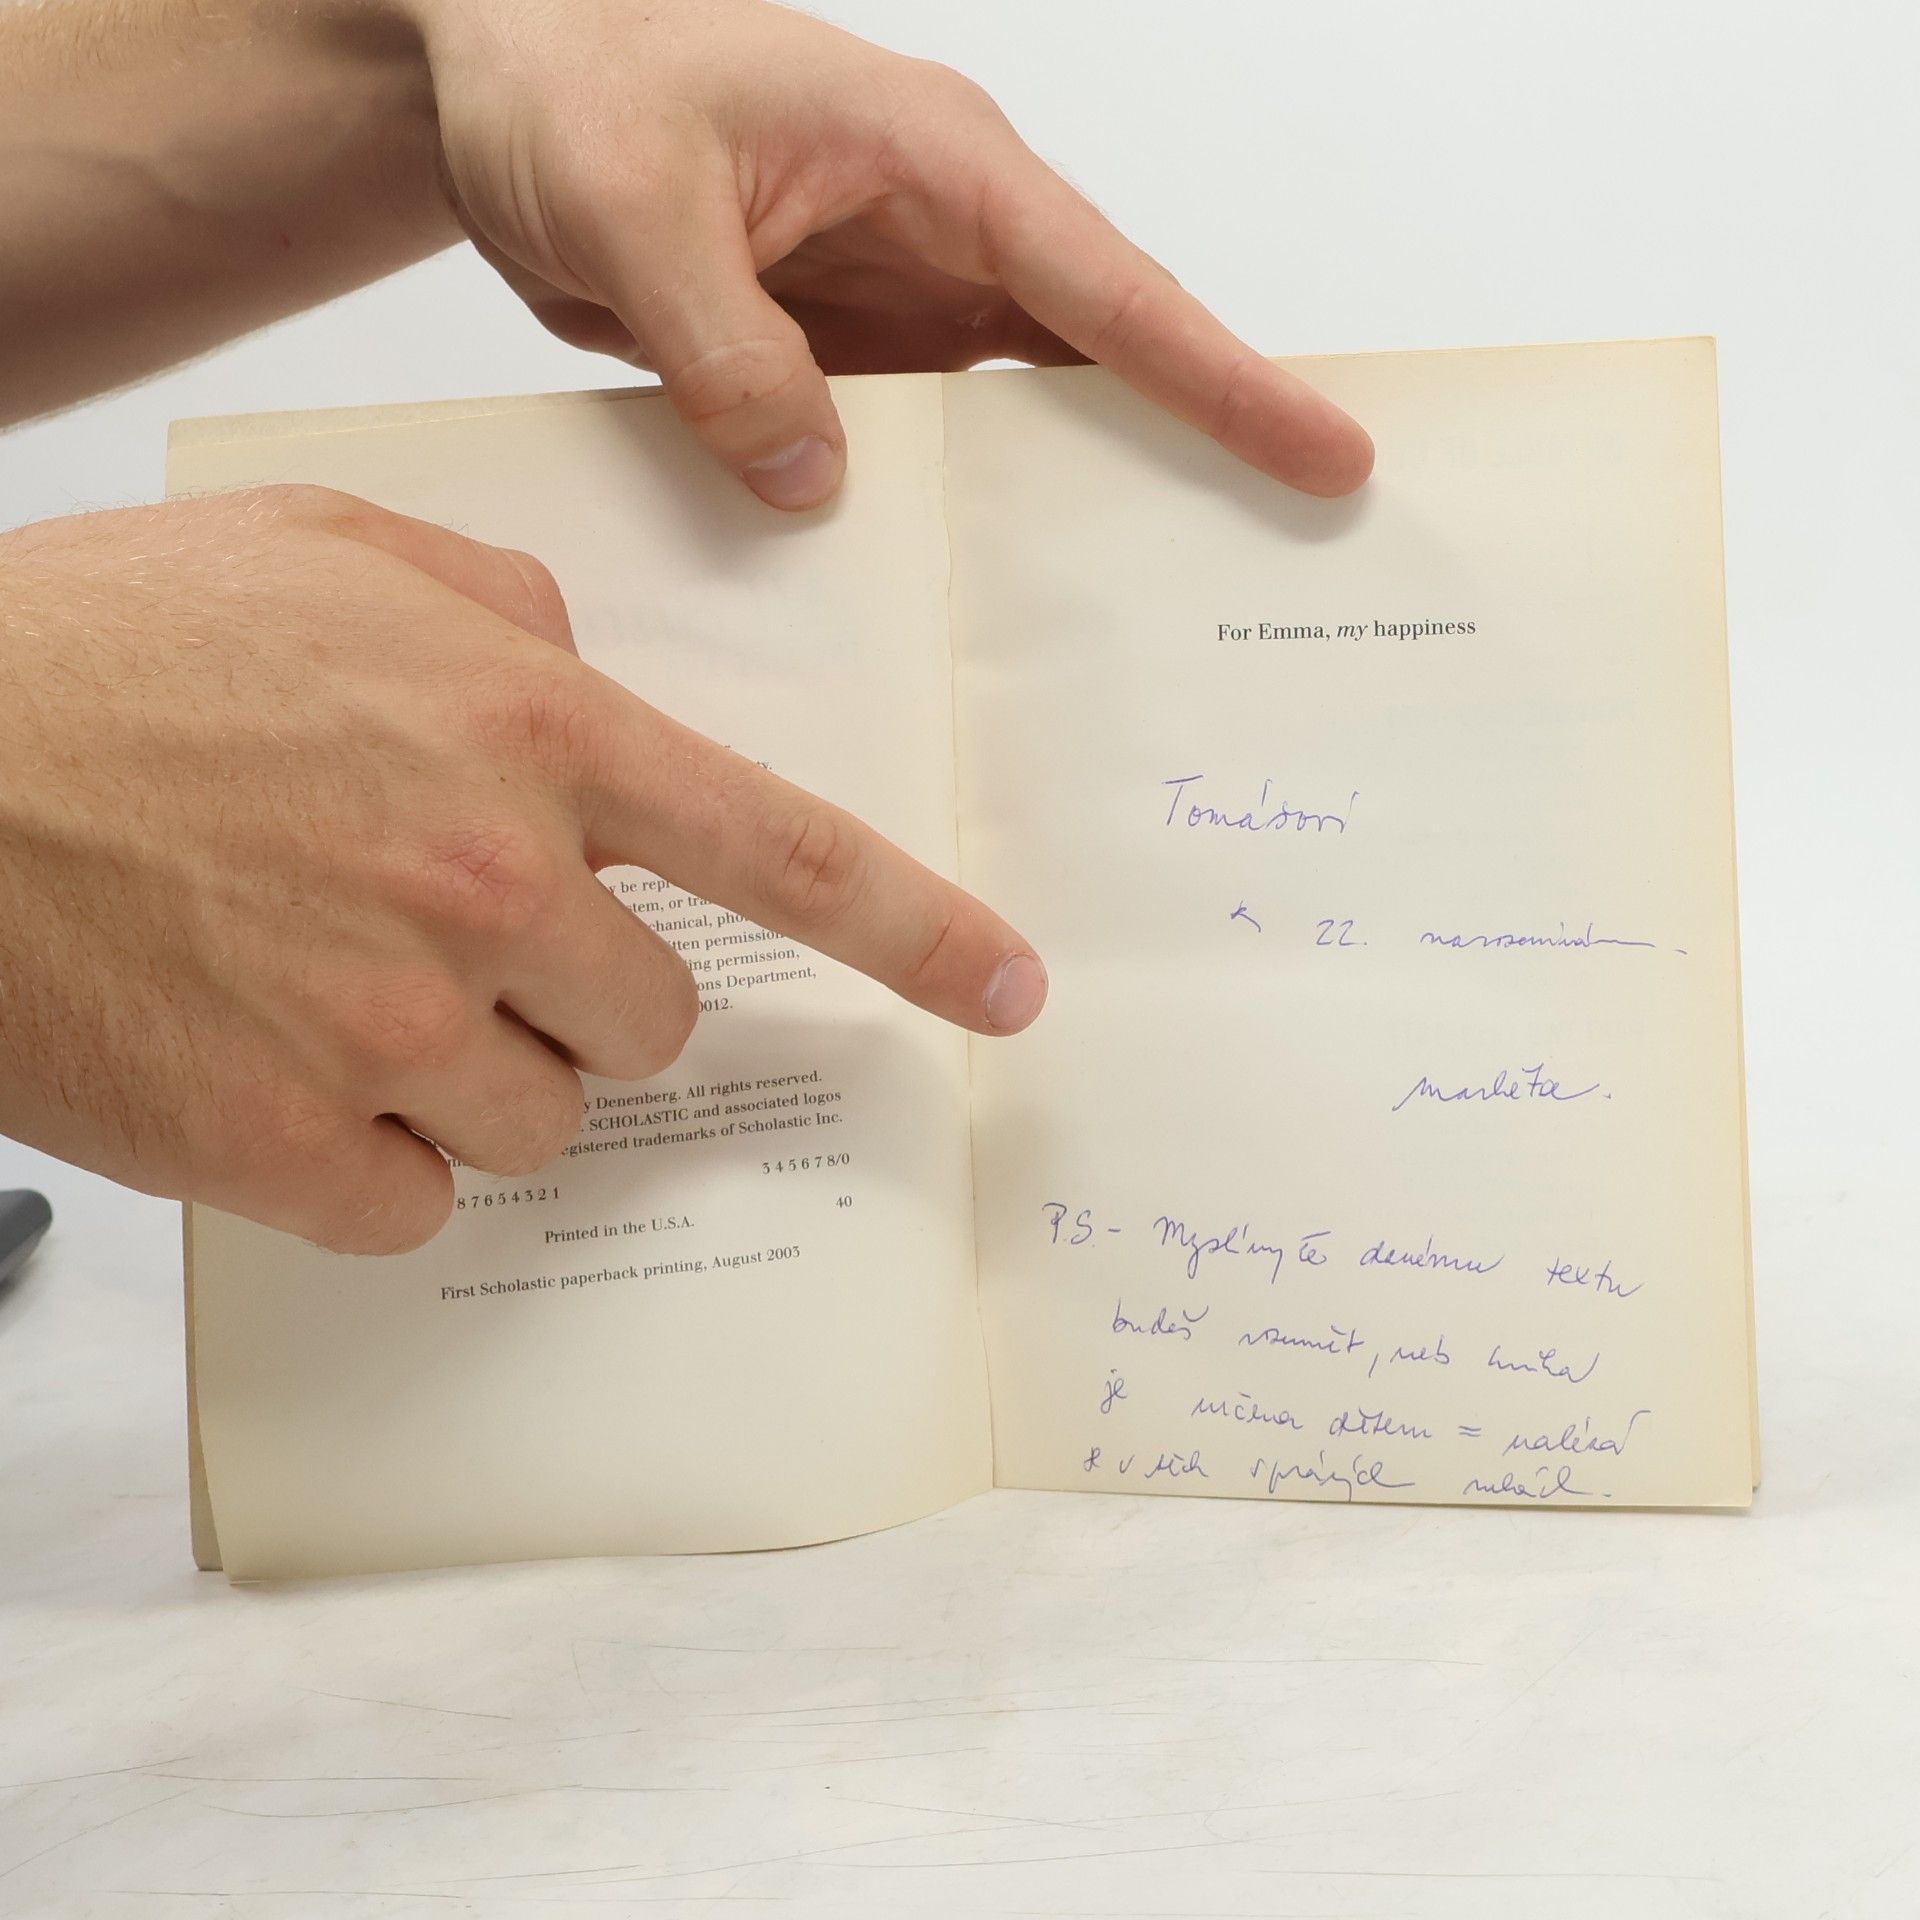 ty.
y be repr
stem, or tra
chanical, pho
tten permission
ing permission,
ons Department,
0012.
y Denenberg. All rights reserved.
. SCHOLASTIC and associated logos
egistered trademarks of Scholastic Inc.
8 7 6 5 4 3 2 1
3 4 5 6 7 8/0
Printed in the U.S.A.
40
First Scholastic paperback printing, August 2003
For Emma, my happiness
Tomášovi
K 22. narozeninám
Markéta.
P.S. - Myslím, že danému textu
budeš rozumět, neb kniha
je určena dětem = nalézá
se v těch správných rukách.